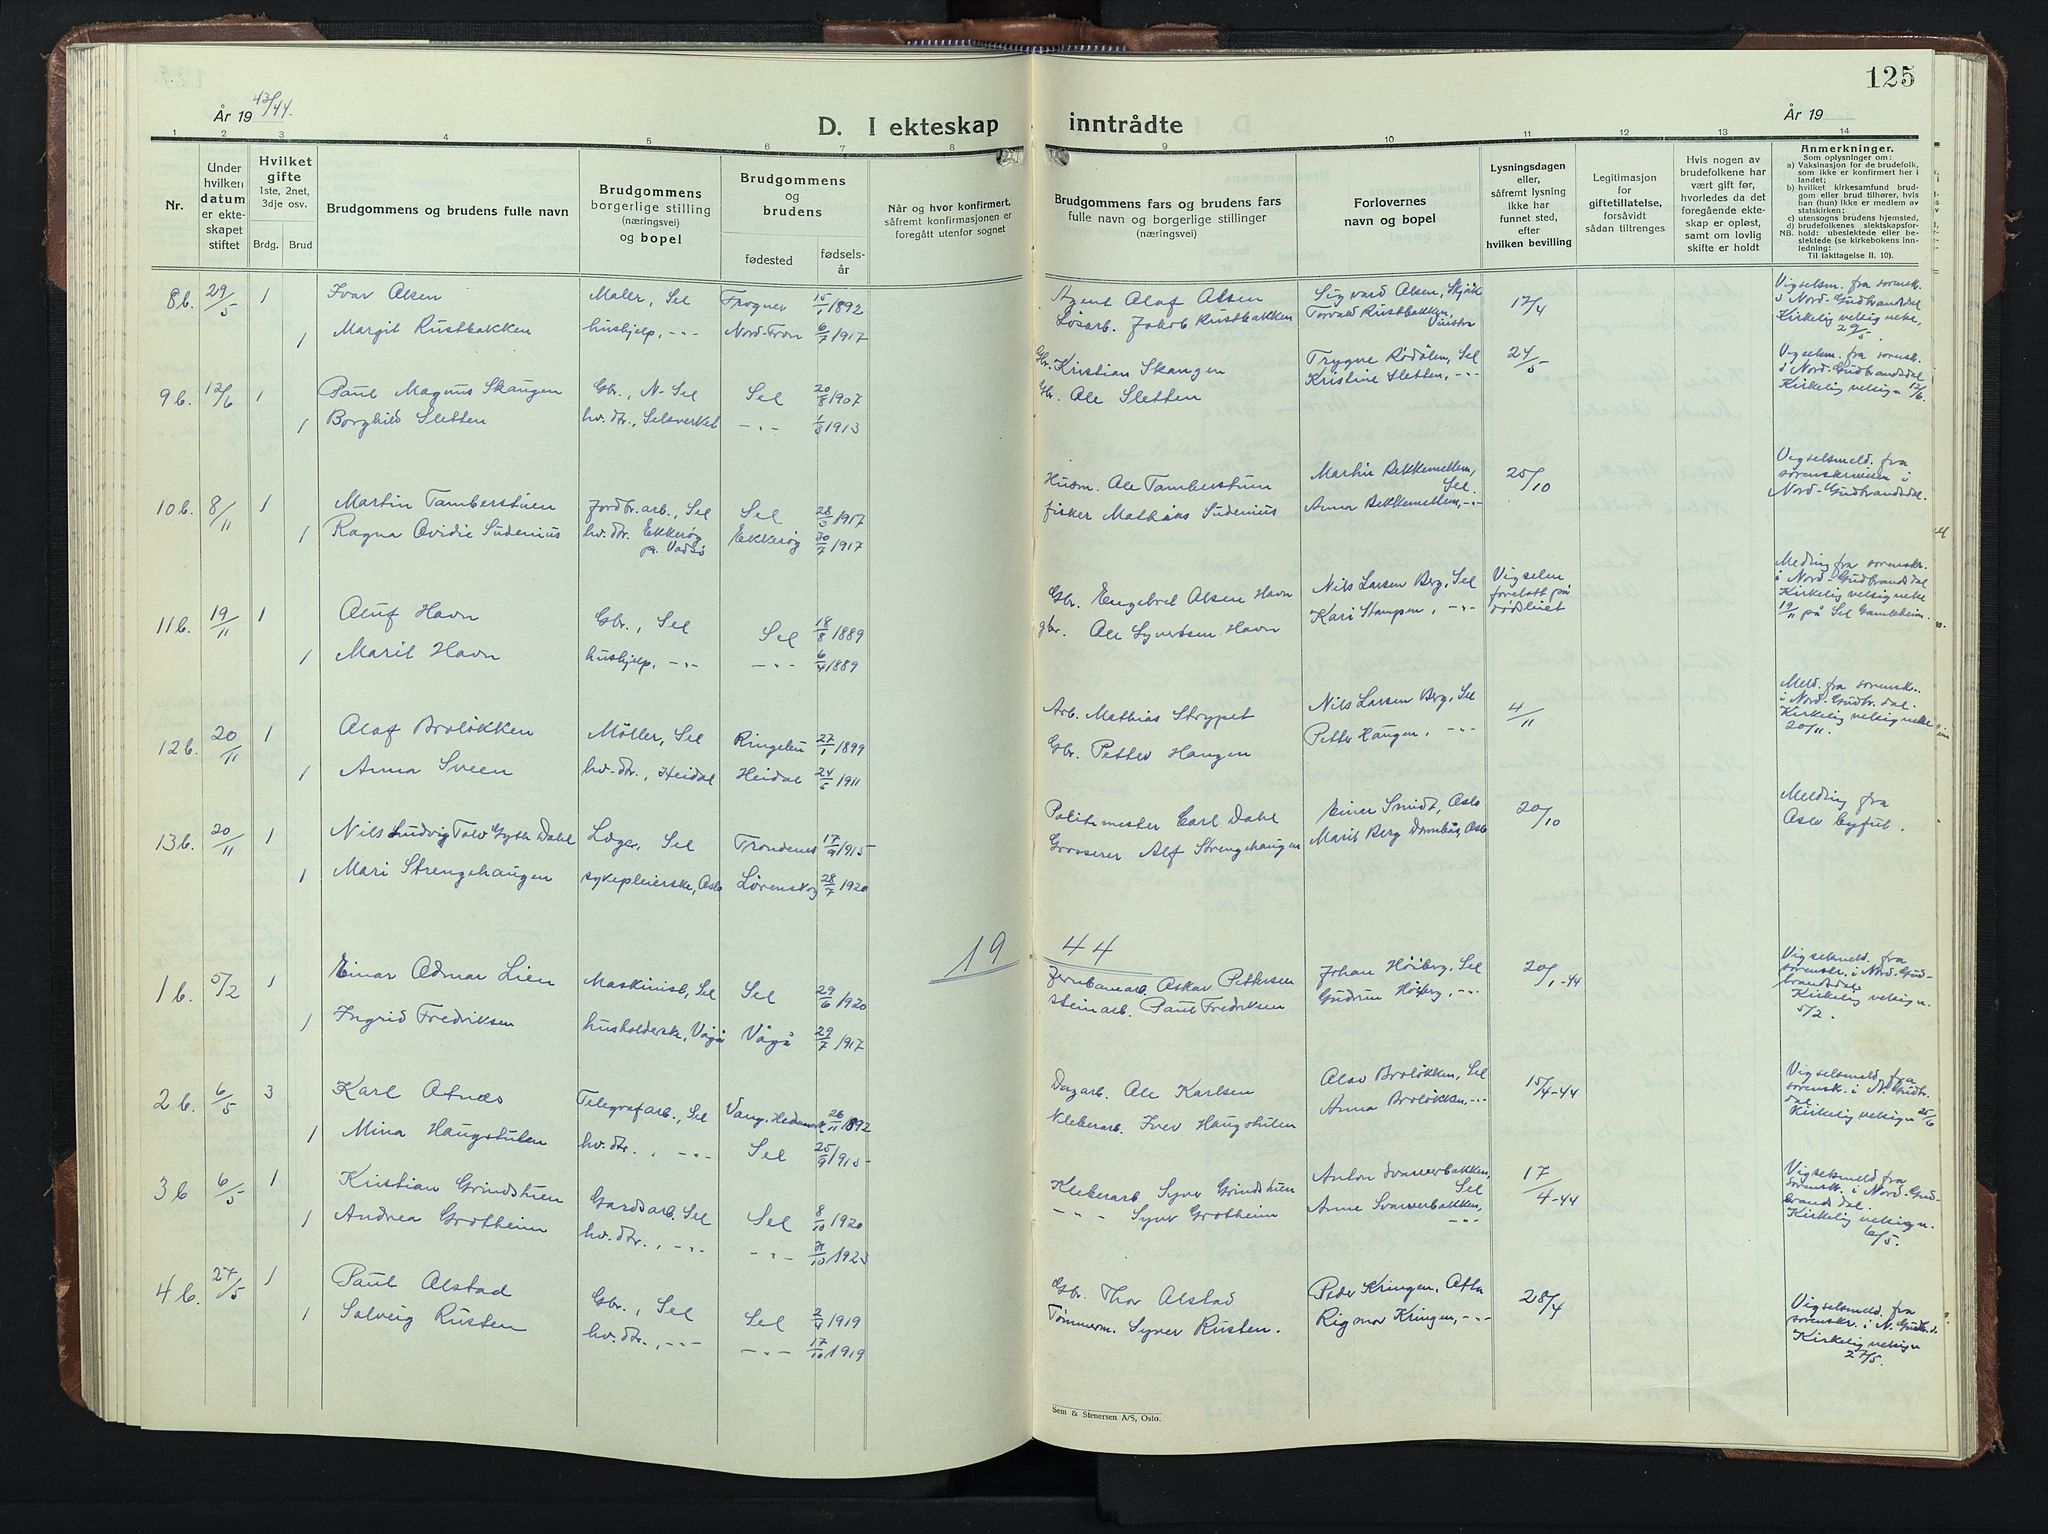 125
År 19 43/44.
D. I ekteskap inntrådte
År 19
1 2 3 4 5 6 7 8 9 10 11 12 13 14
Nr.
Under hvilken datum er ekteskapet stiftet
Hvilket gifte 1ste, 2net, 3dje osv.
Brdg. Brud
Brudgommens og brudens fulle navn
Brudgommens borgerlige stilling (næringsvei) og bopel
Brudgommens og brudens
fødested fødselsår
Når og hvor konfirmert, såfremt konfirmasjonen er foregått utenfor sognet
Brudgommens fars og brudens fars fulle navn og borgerlige stillinger (næringsvei)
Forlovernes navn og bopel
Lysningsdagen eller, såfremt lysning ikke har funnet sted, efter hvilken bevilling
Legitimasjon for giftetillatelse, forsåvidt sådan tiltrenges
Hvis nogen av brudefolkene har vært gift før, hvorledes da det foregående ekteskap er opløst, samt om lovlig skifte er holdt
Anmerkninger.
Som oplysninger om:
a) Vaksinasjon for de brudefolk, som ikke er konfirmert her i landet;
b) hvilket kirkesamfund brudgom eller brud tilhører, hvis han (hun) ikke er medlem av statskirken;
c) utensogns brudens hjemsted,
d) brudefolkenes slektskapsforhold: ubeslektede eller beslektede (se kirkebokens innledning:
NB. Til iakttagelse II. 10).
8b. 29/5 1 Ivar Olsen Maler, Sel Frogner 15/1 1892 Agent Olaf Olsen Sigvard Olsen, Skjåk 17/4 Vigselsm. fra sorensk. i Nord-Gudbrandsdal Kirkelig velsignelse 29/5.
1 Margit Rustbakken hushjelp, -"- Nord-Fron 6/7 1917 Løsarb. Jakob Rustbakken Torvald Rustbakken,
9b. 12/6 1 Paul Magnus Skaugen Gbr., N-Sel Sel 20/8 1907 Gbr. Kristian Skaugen Trygve Rødølen, Sel 24/5 Vigselsm. fra sorensk. i Nord-Gudbrandsdal Kirkelig velsign 12/6.
1 Borghild Sletten hv. dtr., Selsverket -"- 1/3 1913 Gbr. Ole Sletten Kristine Sletten, -"-
10b. 8/11 1 Martin Tamberstuen Jordbr.arb., Sel Sel 28/5 1917 Husm. Ole Tamberstuen Martin Bekkemellem, Sel 25/10 Vigselsmeld. fra sorenskriveren i Nord-Gudbrandsdal.
1 Ragna Ovidie Sudenius hv. dtr. Ekkerøy pr. Vadsø Ekkerøy 30/7 1917 fisker Mathias Sudenius Anna Bekkemellem, -"-
11b. 19/11 1 Oluf Havn Gbr., Sel Sel 18/8 1889 Gbr. Engebret Olsen Havn Nils Larsen Berg, Sel Vigselen foretatt på rødsliet Melding fra sorenskr. i Nord-Gudbrandsdal Kirkelig velsignelse 19/11 på Sel Gamleheim.
1 Marit Havn hushjelp, -"- -"- 6/4 1889 gbr. Ole Syversen Havn Kari Stampen, -"-
12b. 20/11 1 Olaf Broløkken Møller, Sel Ringebu 27/1 1899 Arb. Mathias Strypet Nils Larsen Berg, Sel 4/11 Meld. fra sorensk. i Nord-Gudbr. dal. Kirkelig velsignelse 20/11.
1 Anna Sveen hv. dtr., Heidal Heidal 24/5 1911 Gbr. Petter Haugen Petter Haugen, -"-
13b. 20/11 1 Nils Ludvig Tolv Gyth Dahl Læge, Sel Trondenes 17/9 1915 Politimester Carl Dahl Einar Smidt, Oslo 20/10 Melding fra Oslo byfut.
1 Mari Strengehaugen sykepleierske, Oslo Lørenskog 28/7 1920 Grosserer Alf Strengehaugen Marit Berg Dombås, Oslo
19 44
1b. 5/2 1 Einar Odmar Lien Maskinist, Sel Sel 29/6 1920 Jernbanearb. Oskar Pettersen Johan Høiberg, Sel 20/1-44 Vigselsmeld. fra sorenskr. i Nord-Gudbrandsdal Kirkelig velsign. 5/2.
1 Ingrid Fredriksen husholdersk, Vågå Vågå 29/7 1917 steinarb. Paul Fredriksen Gudrun Høiberg, -"-
2b. 6/5 3 Karl Atnås Telegrafarb., Sel Vang, Hedemark 26/11 1892 Dagarb. Ole Karlsen Olav Broløkken, Sel 15/4-44 Vigselsmeld. fra sorensk. i N. Gudbr. dal. Kirkelig velsign 25/6
1 Mina Haugstulen hv. dtr., -"- Sel 25/9 1915 Kleberarb. Iver Haugstulen Anna Broløkken, -"-
3b 6/5 1 Kristian Grindstuen Gardsarb. Sel Sel 8/10 1920 Kleberarb Syver Grindstuen Anton Svarverbakken, Sel 17/4-44 Vigselsmeld fra sorensk. i Nord-Gudbrandsdal. Kirkelig velsign. 6/5.
1 Andrea Grotheim hv. dtr., -"- -"- 1923 -"- Syver Grotheim Anne Svarverbakken, -"-
4b. 27/5 1 Paul Olstad Gbr., Sel Sel 2/4 1919 Gbr. Thor Olstad Peder Kringen, Otta 28/4 Vigselsmeld. fra sorenskr. i N. Gudbr.d. Kirkelig velsign 27/5.
1 Solveig Rusten hv. dtr., -"- -"- 17/10 1919 Tømmerm. Syver Rusten. Rigmor Kringen, -"-
Sem & Stenersen A/S, Oslo.